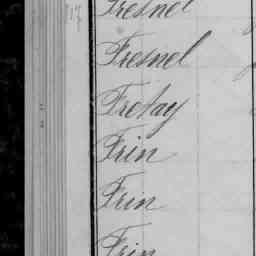 Fresnel
Fresnel
Frotay
Frin
Frin
Frin